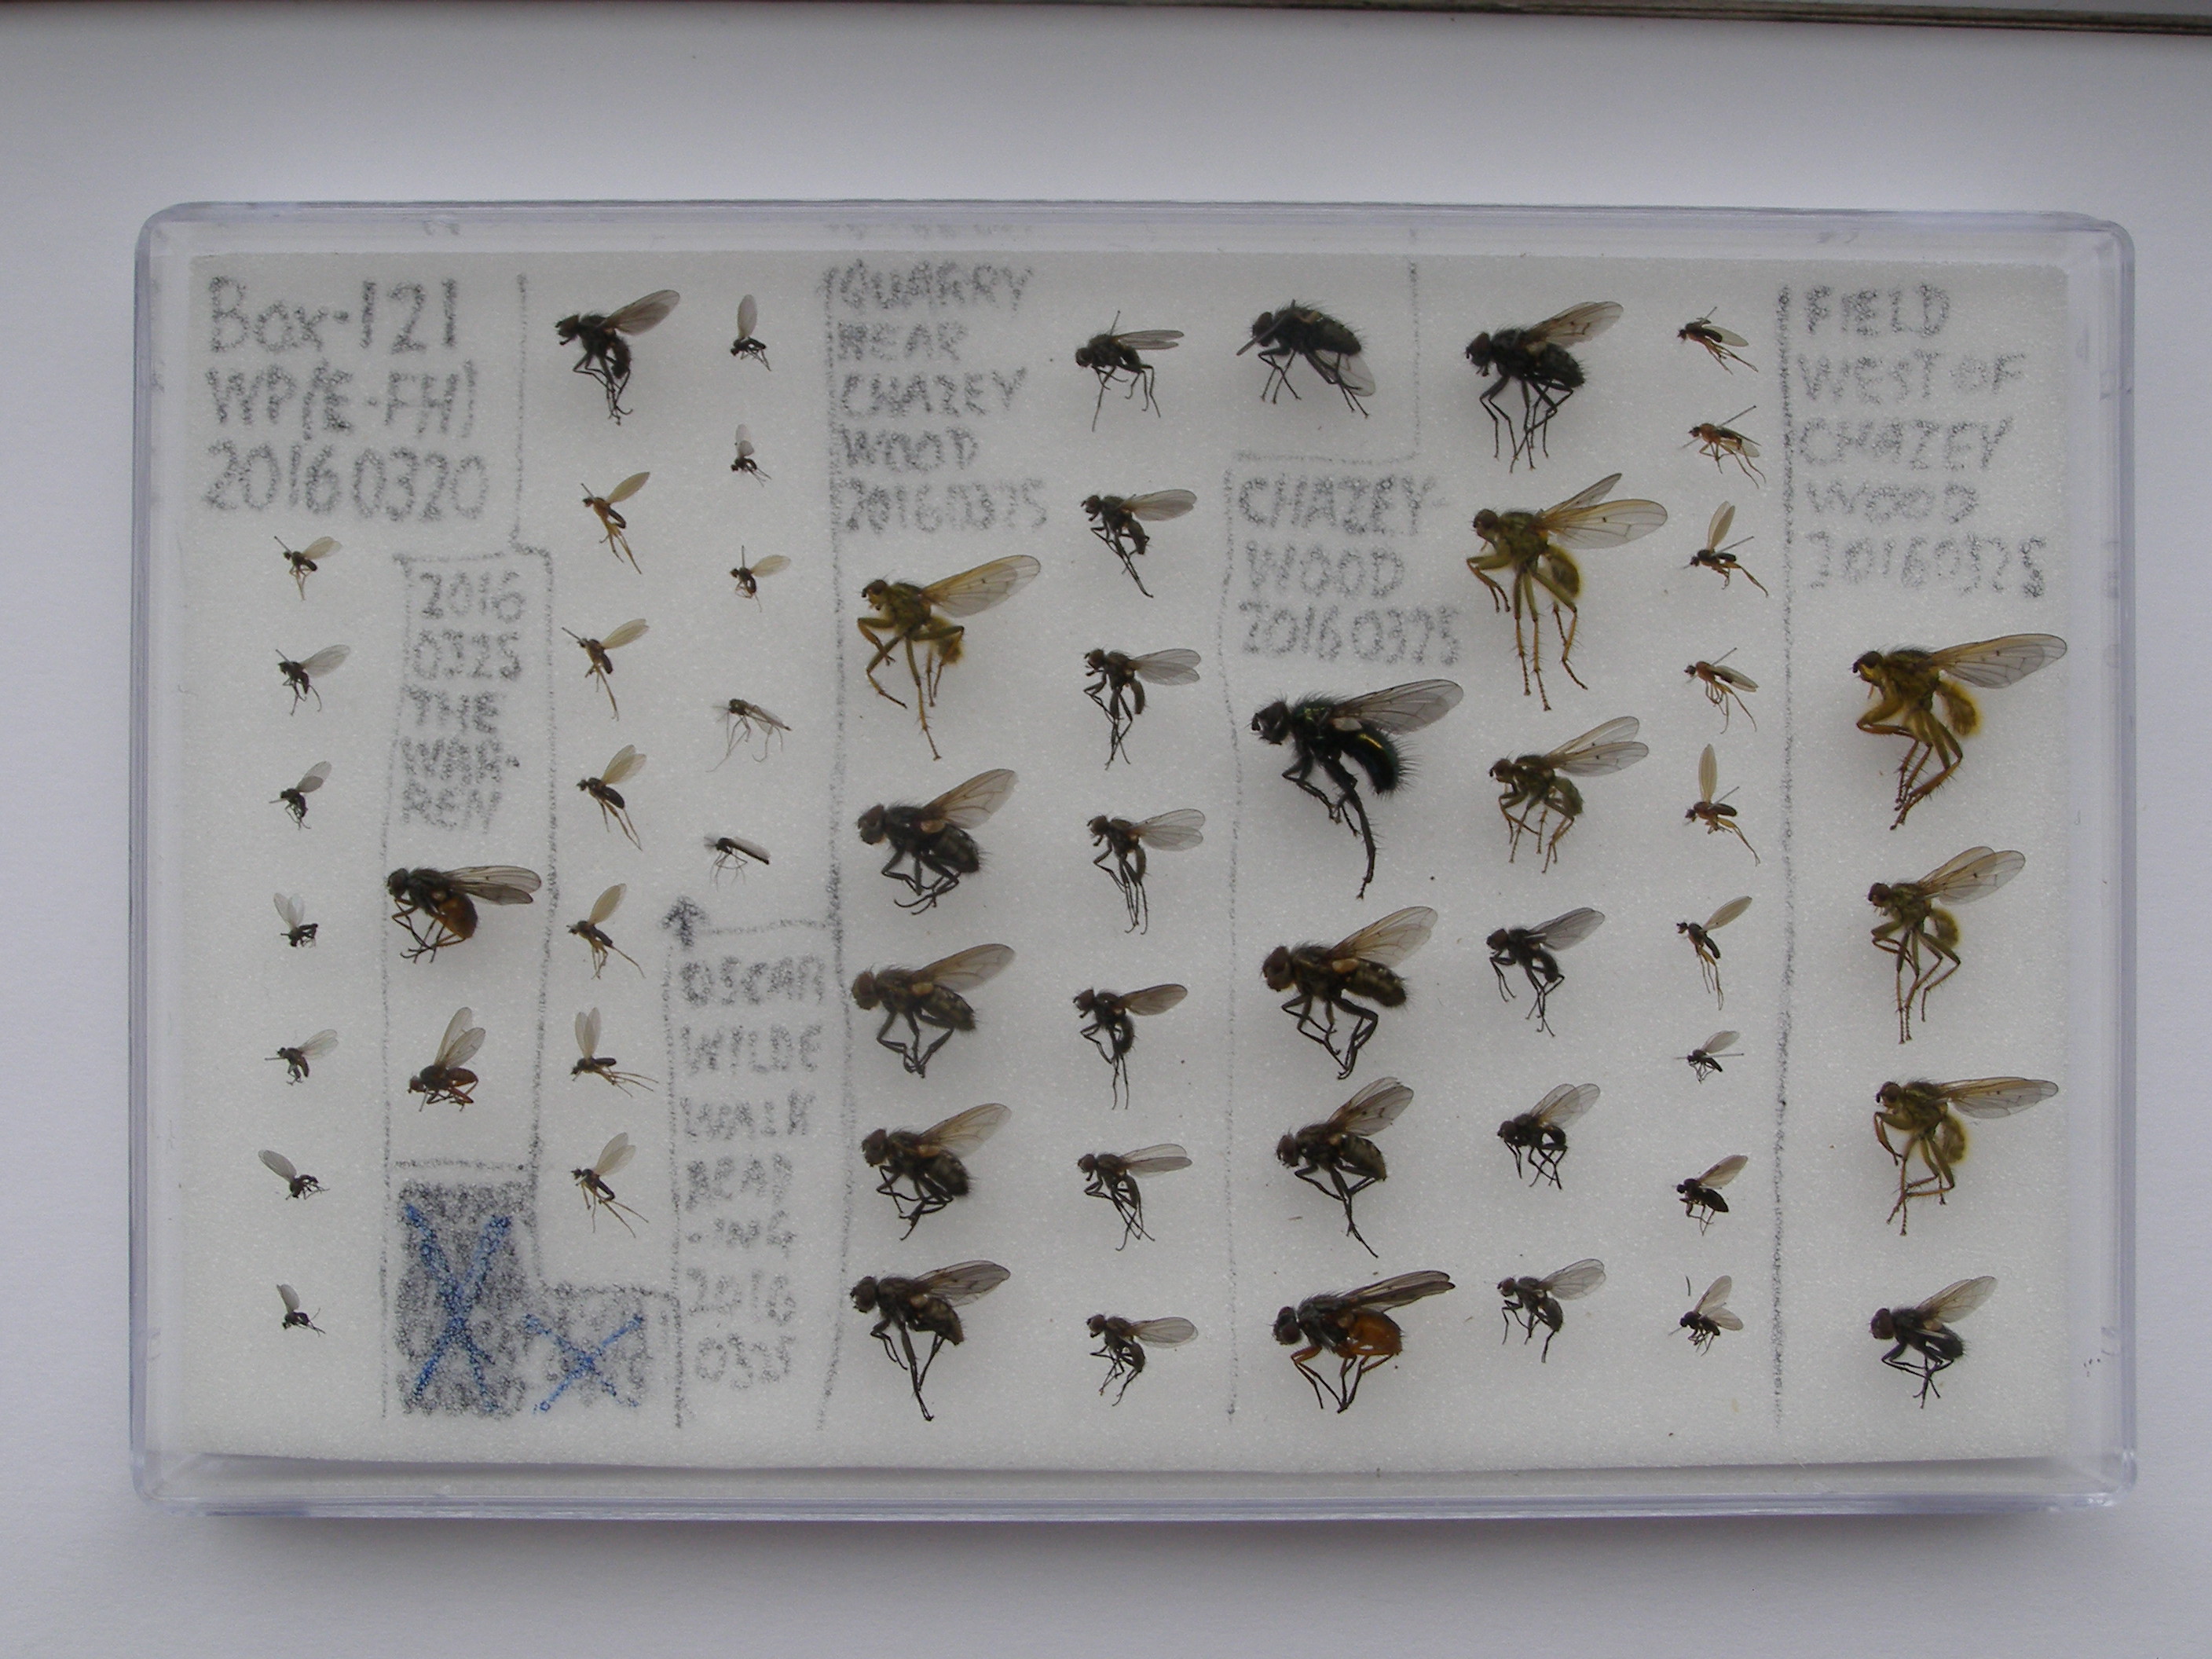 Box-121
WP(E-FH)
20160320
2016
0325
THE
WAR-
REN
OSCAR
WILDE
WALK
READ
ING
2016
QUARRY
NEAR
CHAZEY
WOOD
20160325
CHAZEY-
WOOD
20160325
FIELD
WEST OF
CHAZEY
WOOD
20160325